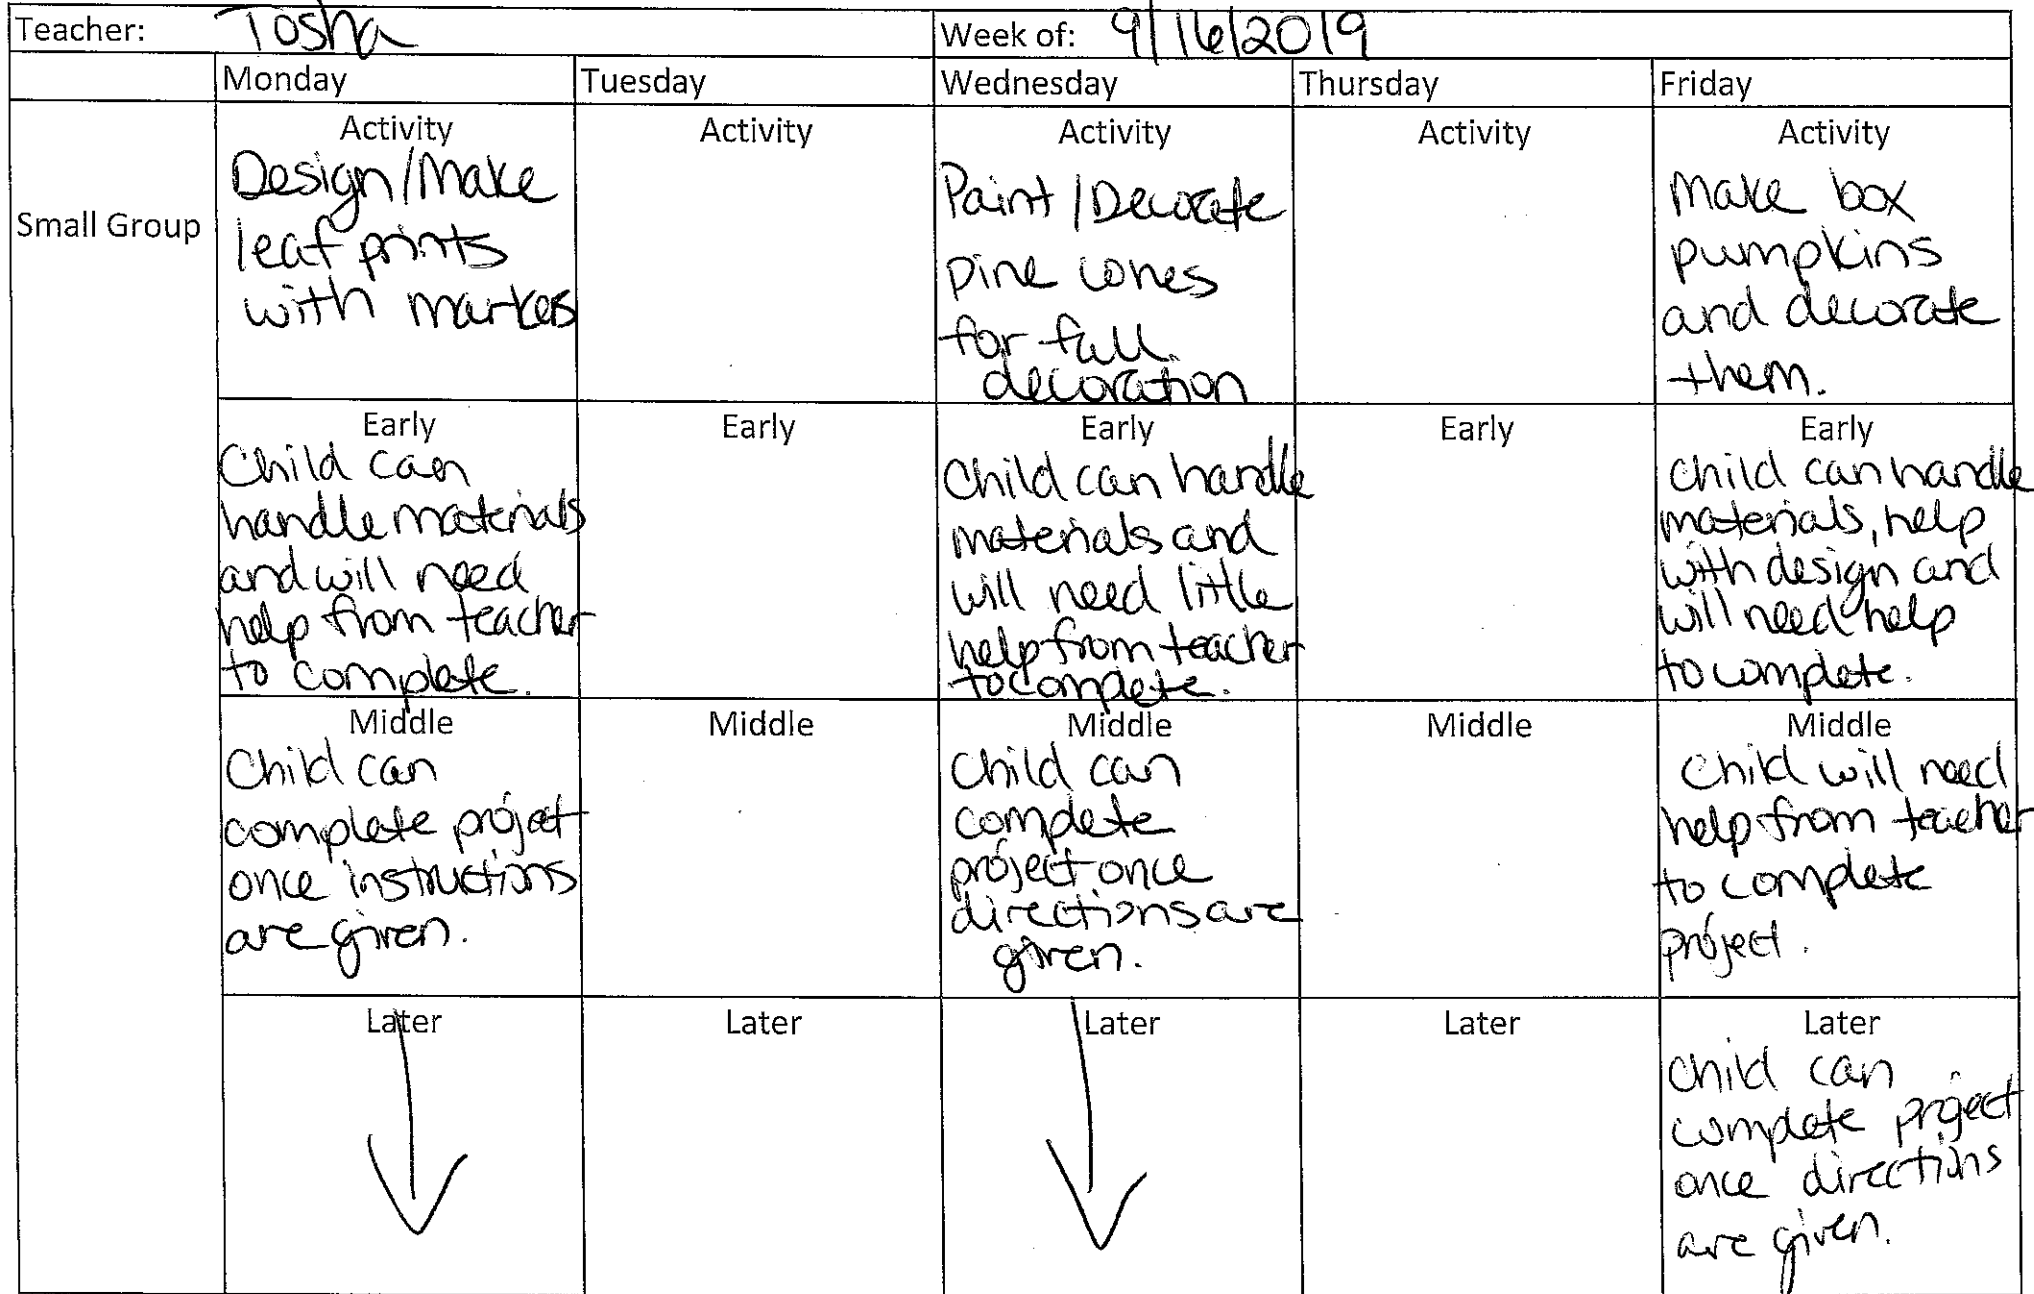 Teacher: Tosha Week of: 9/16/2019
Monday Tuesday Wednesday Thursday Friday
Small Group
Activity
Design/Make
leaf prints
with markers
Activity
Activity
Paint/Decorate
pine cones
for fall
decoration
Activity
Activity
Make box
pumpkins
and decorate
them.
Early
Child can
handle materials
and will need
help from teacher
to complete.
Early
Early
Child can handle
materials and
will need little
help from teacher
to complete.
Early
Early
Child can handle
materials, help
with design and
will need help
to complete.
Middle
Child can
complete project
once instructions
are given.
Middle
Middle
Child can
complete
project once
directions are
given.
Middle
Middle
Child will need
help from teacher
to complete
project.
Later
Later
Later
Later
Later
Child can
complete project
once directions
are given.